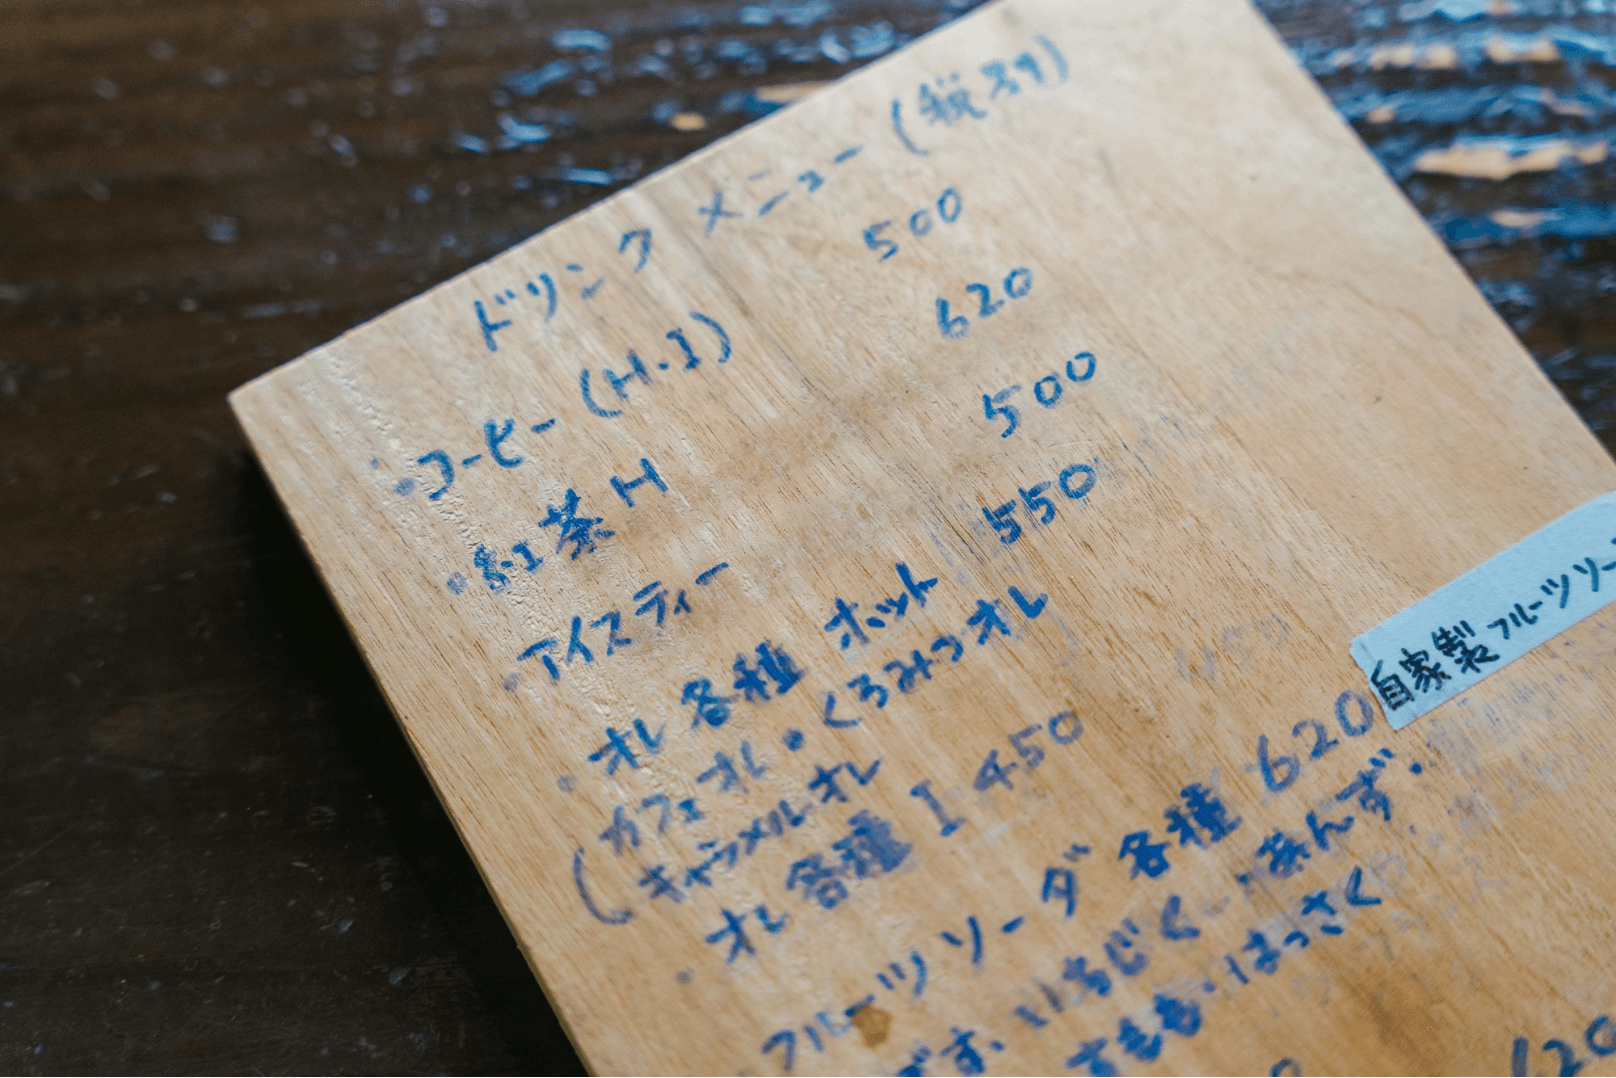 ドリンク メニュー (税別)
・コーヒー (H・I) 500
・紅茶 H 620
・アイスティー 500
・オレ各種 ホット 550
カフェオレ・くるみつオレ
キャラメルオレ
・オレ各種 I 450
フルーツソーダ 各種 620
いちじく・あんず・
すもも・はっさく
620
自家製フルーツソー